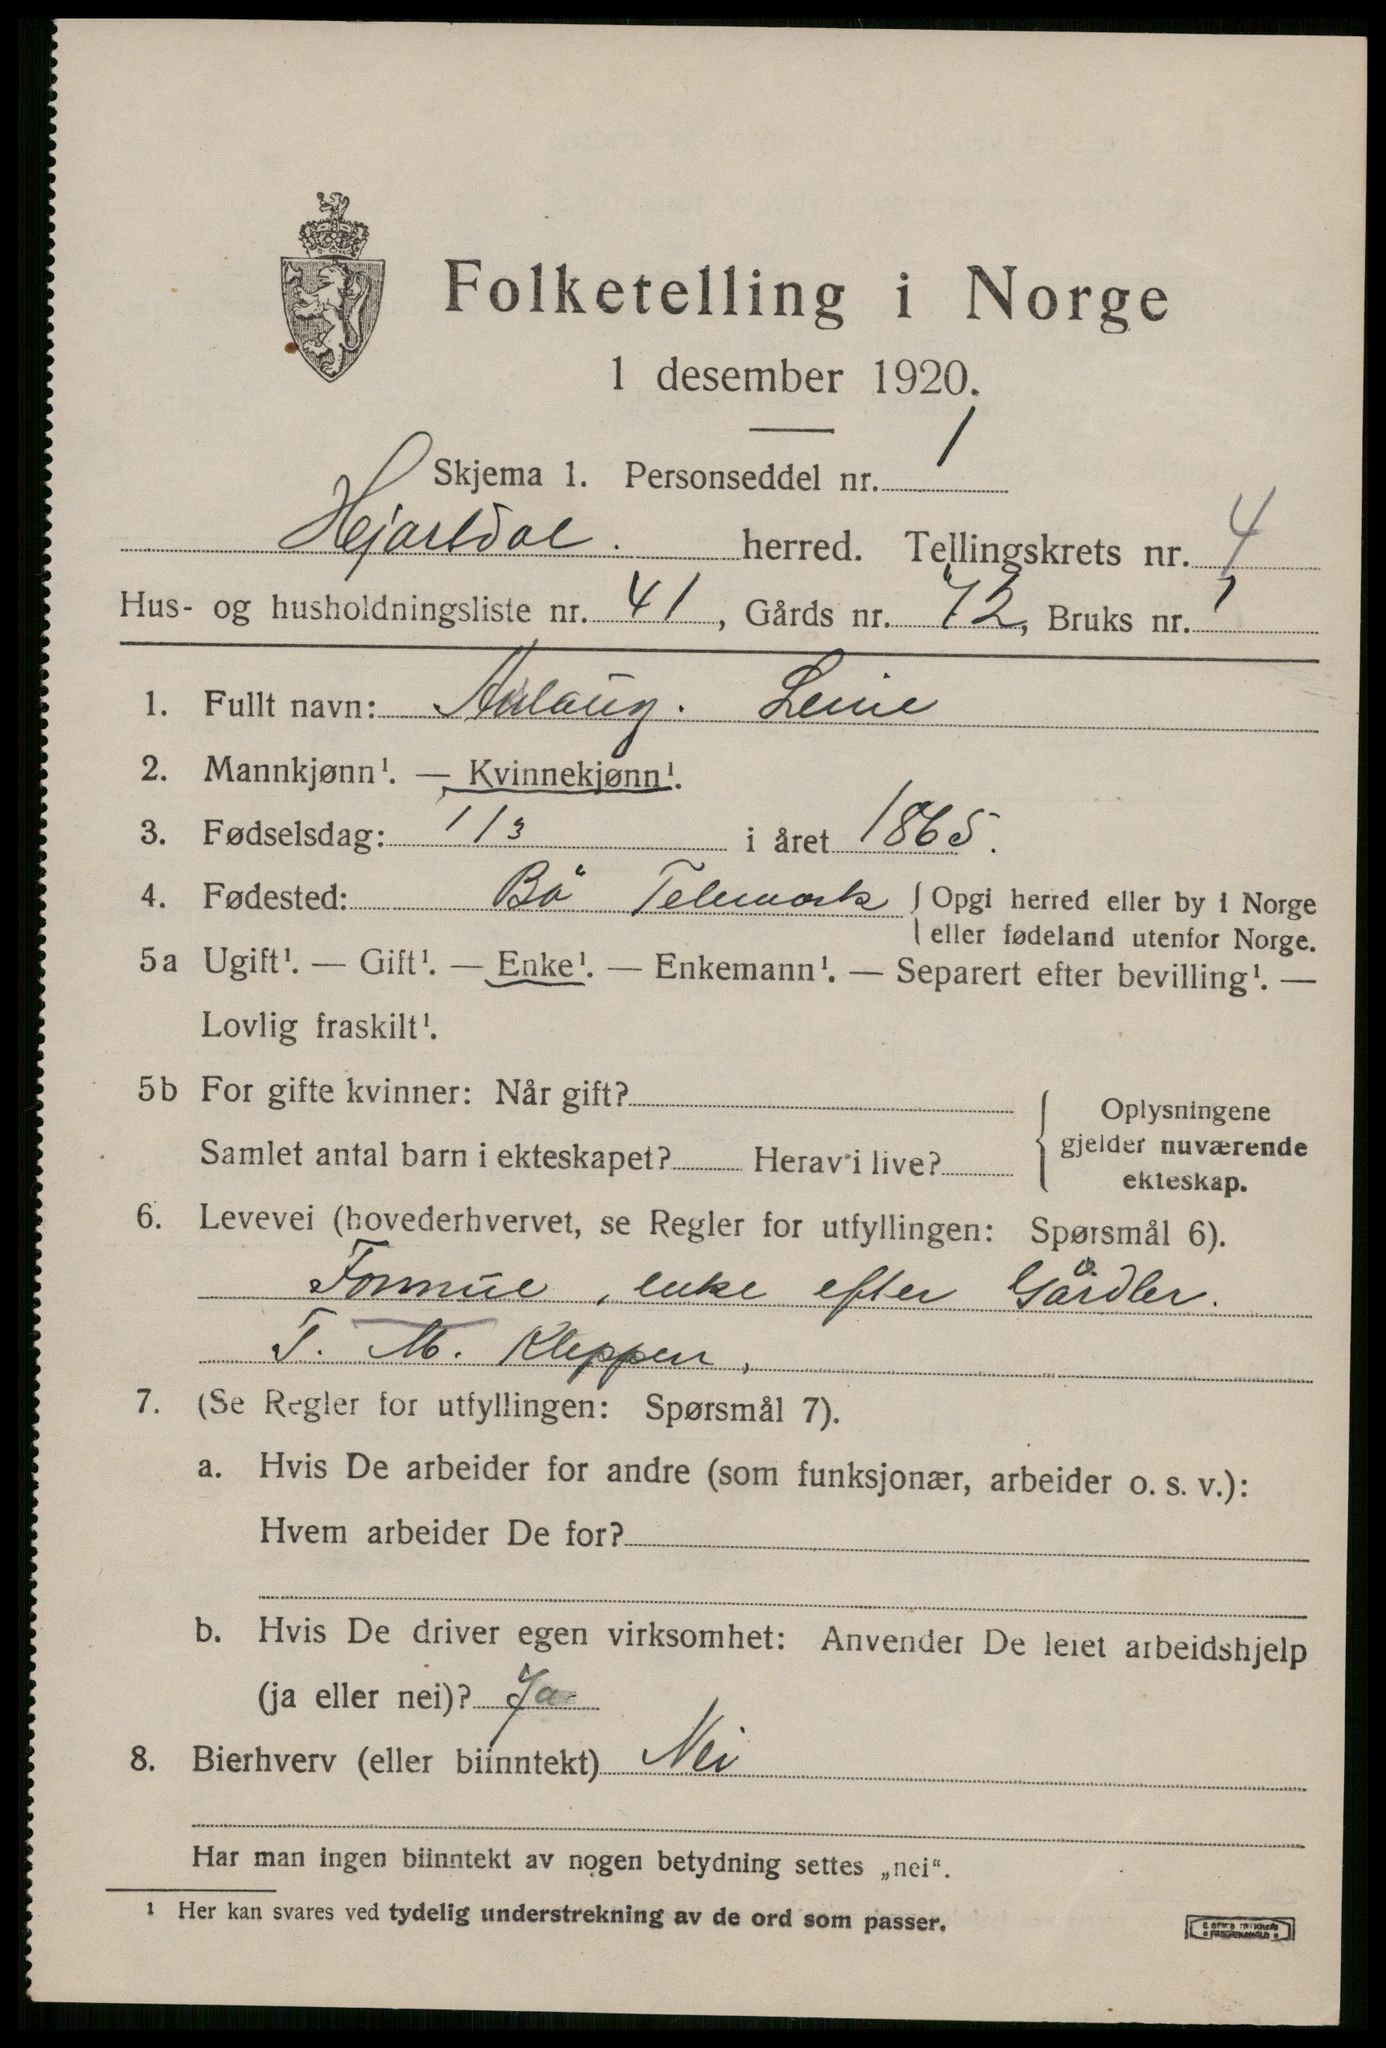 Folketelling i Norge
1 desember 1920.
Skjema 1. Personseddel nr. 1
Hjartdal. herred. Tellingskrets nr. 4
Hus- og husholdningsliste nr. 41, Gårds nr. 72, Bruks nr. 1
1. Fullt navn: Aslaug. Leine
2. Mannkjønn¹. — Kvinnekjønn¹.
3. Fødselsdag: 1/3 i året 1865.
4. Fødested: Bø Telemark { Opgi herred eller by i Norge
eller fødeland utenfor Norge.
5a Ugift¹. — Gift¹. — Enke¹. — Enkemann¹. — Separert efter bevilling¹. —
Lovlig fraskilt¹.
5b For gifte kvinner: Når gift?
Samlet antal barn i ekteskapet? Herav i live?
Oplysningene
gjelder nuværende
ekteskap.
6. Levevei (hovederhvervet, se Regler for utfyllingen: Spørsmål 6).
Formue, enke efter Gårdbr.
T. M. Kleppen,
7. (Se Regler for utfyllingen: Spørsmål 7).
a. Hvis De arbeider for andre (som funksjonær, arbeider o. s. v.):
Hvem arbeider De for?
b. Hvis De driver egen virksomhet: Anvender De leiet arbeidshjelp
(ja eller nei)? Ja
8. Bierhverv (eller biinntekt) Nei
Har man ingen biinntekt av nogen betydning settes „nei“.
¹ Her kan svares ved tydelig understrekning av de ord som passer.